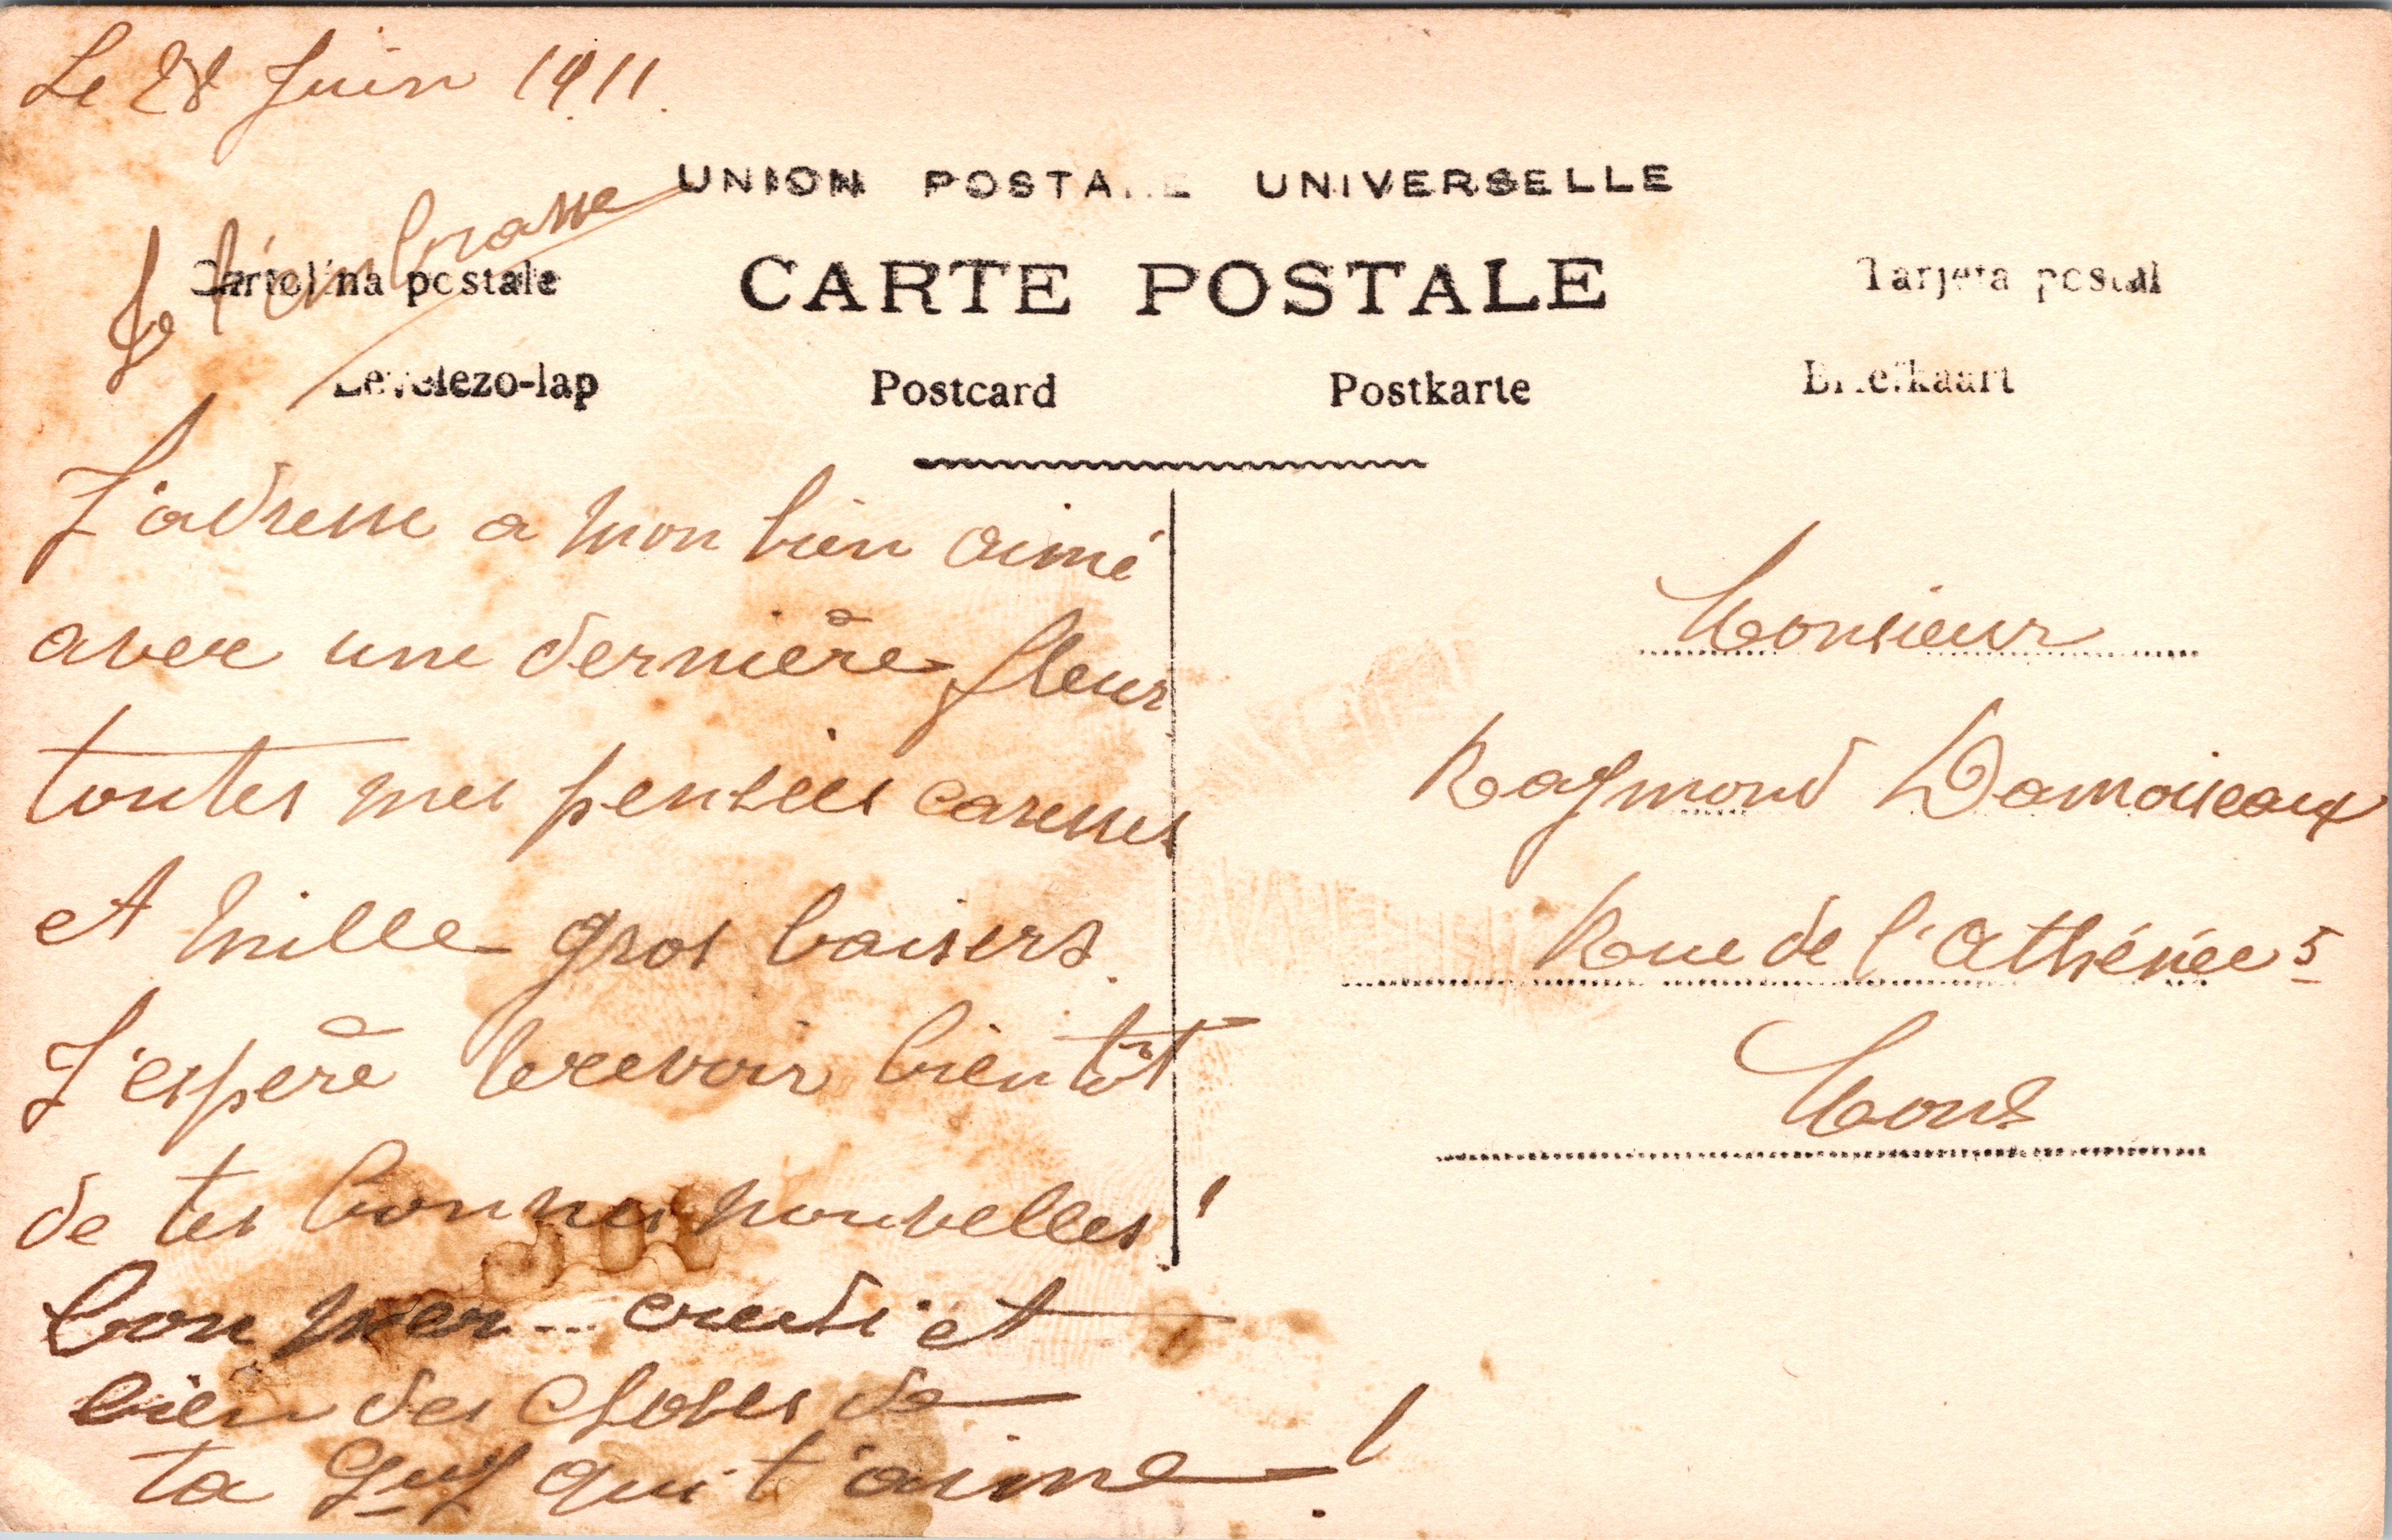 Le 28 Juin 1911.
UNION POSTALE UNIVERSELLE
Je t'embrasse
Cartolina postale
CARTE POSTALE
Tarjeta postal
Levelezo-lap
Postcard
Postkarte
Briefkaart
J'adresse a mon bien aimé
avec une dernière fleur
toutes mes pensées caresses
et mille gros baisers.
J'espère recevoir bientôt
de tes bonnes nouvelles!
bon mer... credi et
bien des choses de
ta Guy qui t'aime!
Monsieur
Raymond Damoiseaux
Rue de l'Athénée 5
Mons